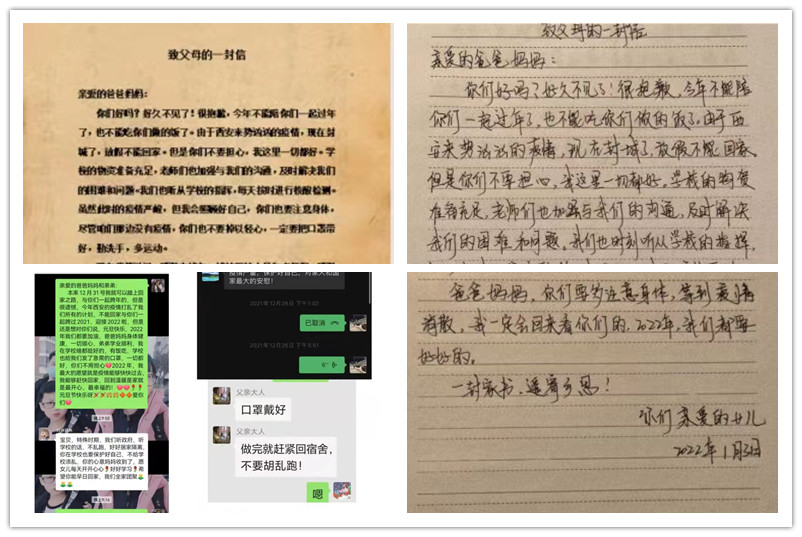 致父母的一封信
亲爱的爸爸妈妈：
你们好吗？好久不见了！很抱歉，今年不能陪你们一起过年
了，也不能吃你们做的饭了。由于西安来势汹汹的疫情，现在封
城了，放假不能回家。但是你们不要担心，我这里一切都好。学
校的物资准备充足，老师们也加强与我们的沟通，及时解决我们
的困难和问题。我们也听从学校的指挥，每天按时进行核酸检测。
虽然此时的疫情严峻，但我会照顾好自己，你们也要注意身体，
尽管咱们那边没有疫情，你们也不要掉以轻心，一定要把口罩带
好，勤洗手，多运动。
致父母的一封信
亲爱的爸爸妈妈：
你们好吗？好久不见了！很抱歉，今年不能陪
你们一起过年了，也不能吃你们做的饭了。由于西
安来势汹汹的疫情，现在封城了，放假不能回家。
但是你们不要担心，我这里一切都好。学校的物资
准备充足，老师们也加强与我们的沟通，及时解决
我们的困难和问题。我们也时刻听从学校的指挥，
亲爱的爸爸妈妈和弟弟：
本来12月31号我就可以踏上回
家之路，与你们一起跨年的，但是
很遗憾，今年西安的疫情打乱了我
们所有的计划，不能回家与你们一
起跨过2021，迎接2022啦，但是
还是想对你们说，元旦快乐，2022
年我们都要加油，爸爸妈妈身体健
康，一切顺心，弟弟学业顺利，我
在学校啥都挺好的，有饭吃，学校
也给我们发了急需的口罩，一切都
好，你们不用担心❤️2022年，我
最大的愿望就是疫情能够快快过去，
我能够赶快回家，回到温暖是家就
是最开心、最幸福的！
元旦节快乐呀
们❤️
晚上9:02
宝贝，特殊时期，我们听政府、听
学校的话，不乱跑，好好居家隔离，
你在学校也要保护好自己，不给学
校添乱，你的心意妈妈收到了，愿
女儿每天开开心心
好好学习
希
望你能早日回家，我们全家团聚
晚上9:16
疫情严重，保护好自己，对家人和国
家最大的安慰！
2021年12月26日 下午5:02
已取消
2021年12月26日 下午5:51
父亲大人
口罩戴好
父亲大人
做完就赶紧回宿舍，
不要胡乱跑！
嗯
爸爸妈妈，你们要多注意身体，等到疫情
消散，我一定会回来看你们的，2022年，我们都要
好好的。
一封家书，遥寄乡思！
你们亲爱的女儿
2022年1月3日